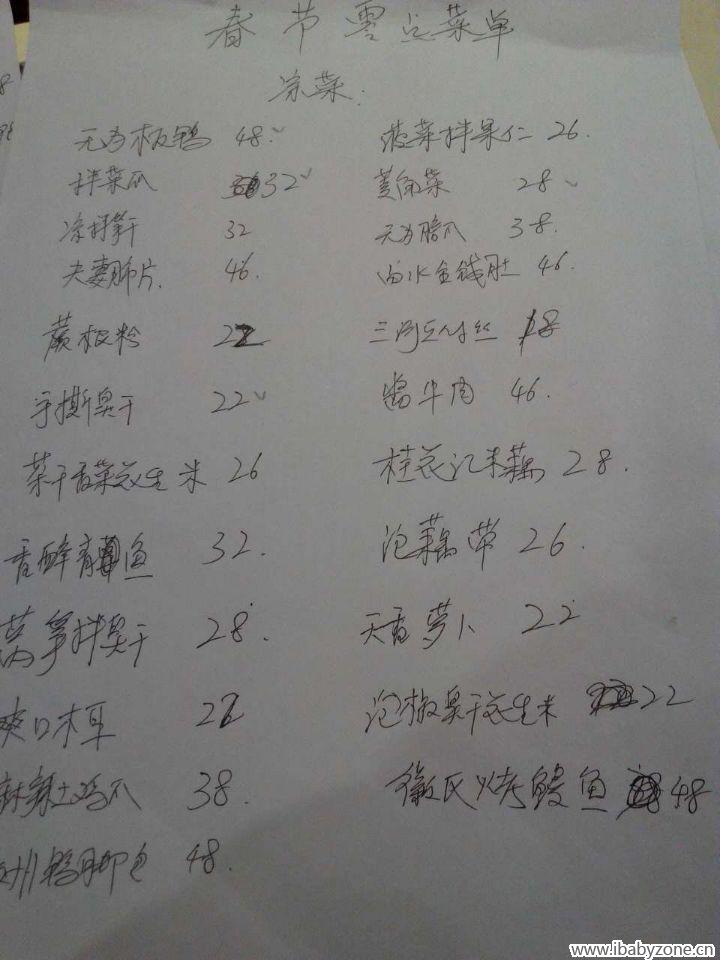 春节零点菜单
凉菜:
无为板鸭 48. 菠菜拌果仁 26.
拌菜瓜 32 黄角菜 28
凉拌笋干 32 无为腊爪 38.
夫妻肺片. 46. 白水金钱肚 46.
蕨根粉 22 三河豆付丝 18
手撕臭干 22 酱牛肉 46.
菜干香菜花生米 26 桂花江米藕 28.
香酥青鱼 32. 泡藕带 26.
莴笋拌臭干 28. 天香萝卜 22
爽口木耳 22 泡椒臭干花生米 22
麻辣土鸡爪 38. 徽氏烤鳗鱼 48
鸭脚包 48.
www.ibabyzone.cn